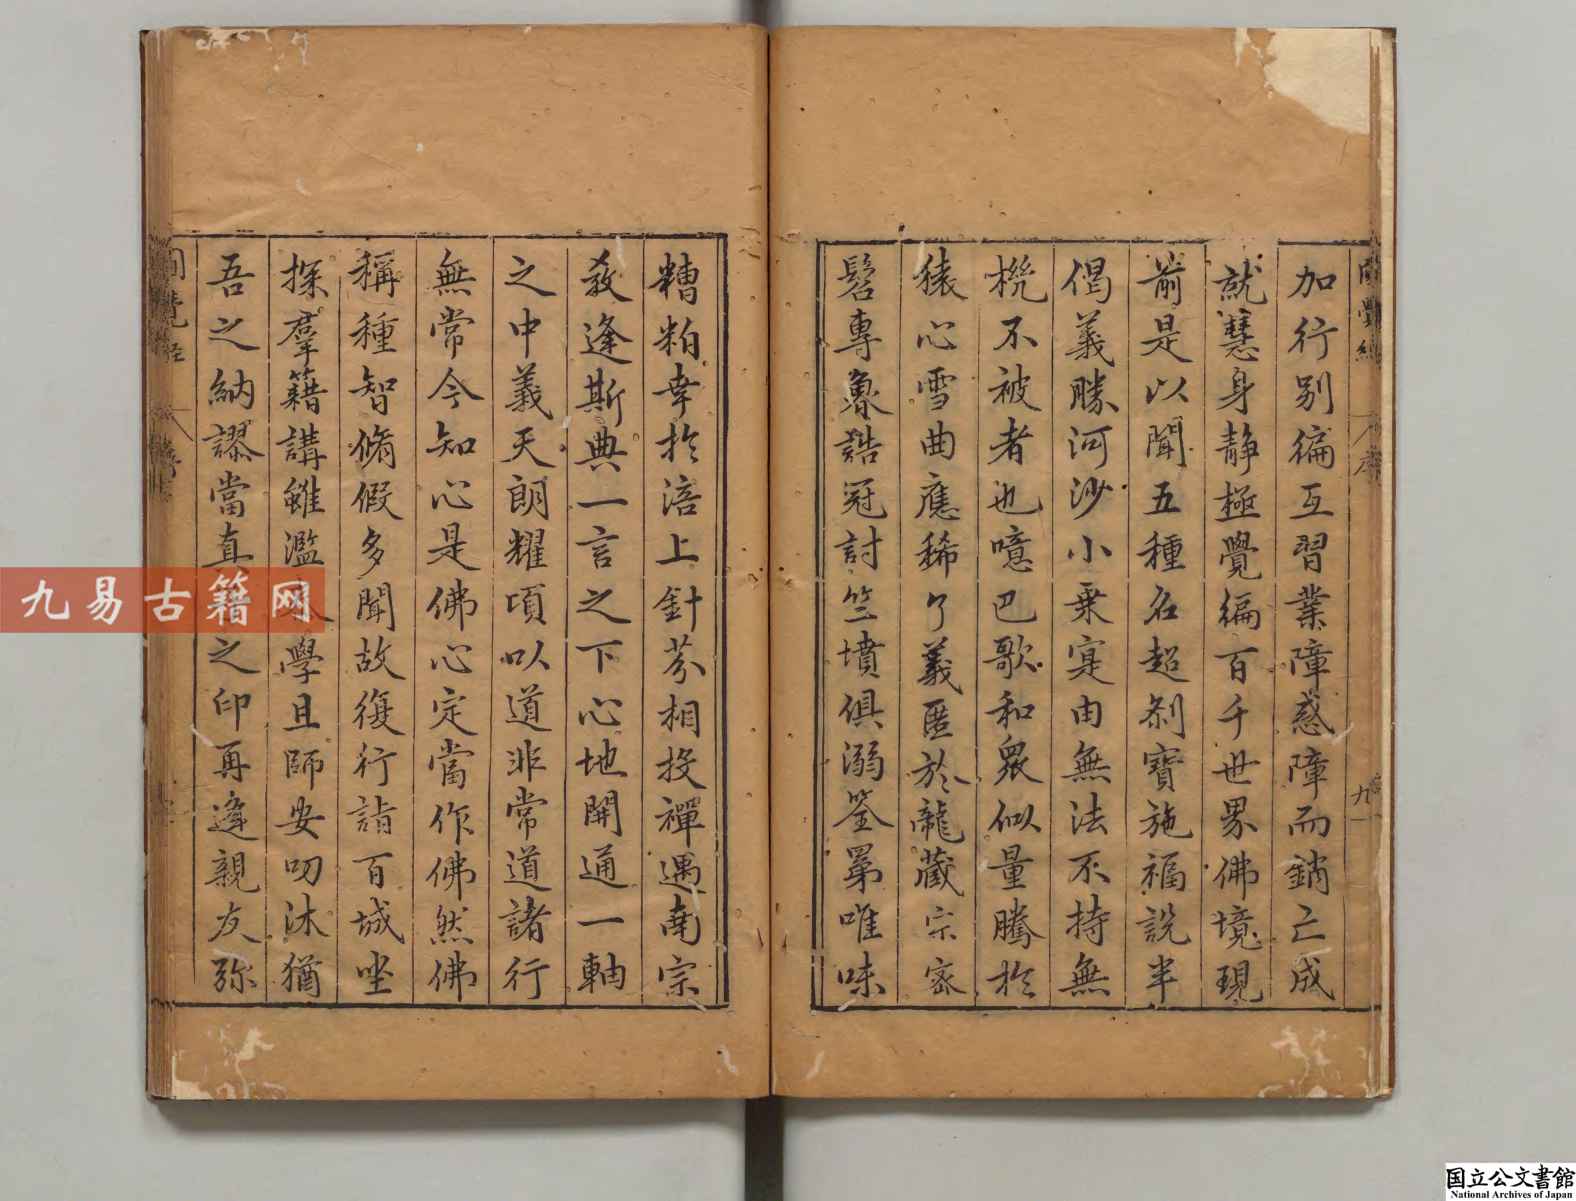 加行別徧互習業障惑障而銷亡成
就慧身靜極覺徧百千世界佛境現
前是以聞五種名超剎寶施福說半
偈義勝河沙小乗寔由無法不持無
機不被者也噫巴歌和衆似量騰於
猿心雪曲應稀了義匿於龍藏宗密
髫專魯誥冠討竺墳俱溺筌罤唯味
糟粕幸於涪上針芥相投禪遇南宗
教逢斯典一言之下心地開通一軸
之中義天朗耀頃以道非常道諸行
無常今知心是佛心定當作佛然佛
稱種智脩假多聞故復行詣百城坐
探羣籍講雖濫學且師安叨沐猶
吾之納謬當直之印再逢親友弥
覺經
九
九易古籍网
国立公文書館
National Archives of Japan